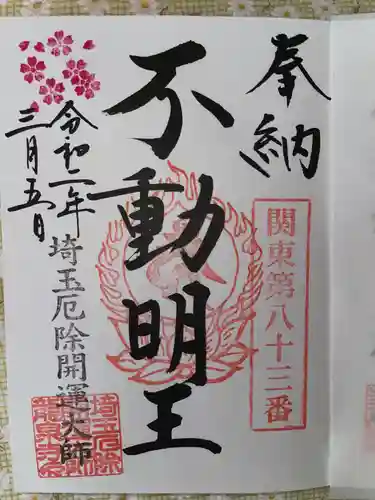 奉納
関東第八十三番
不動明王
令和二年
三月五日
埼玉厄除開運大師